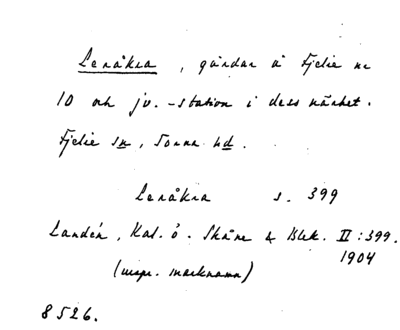 Leråkra, gårdar å Fjelie nr
10 och jv.-station i dess närhet.
Fjelie sn, Torna hd.
Leråkra s. 399
Landén, Kat. ö. Skåne & Blek. II:399.
1904
(urspr. marknamn)
8526.